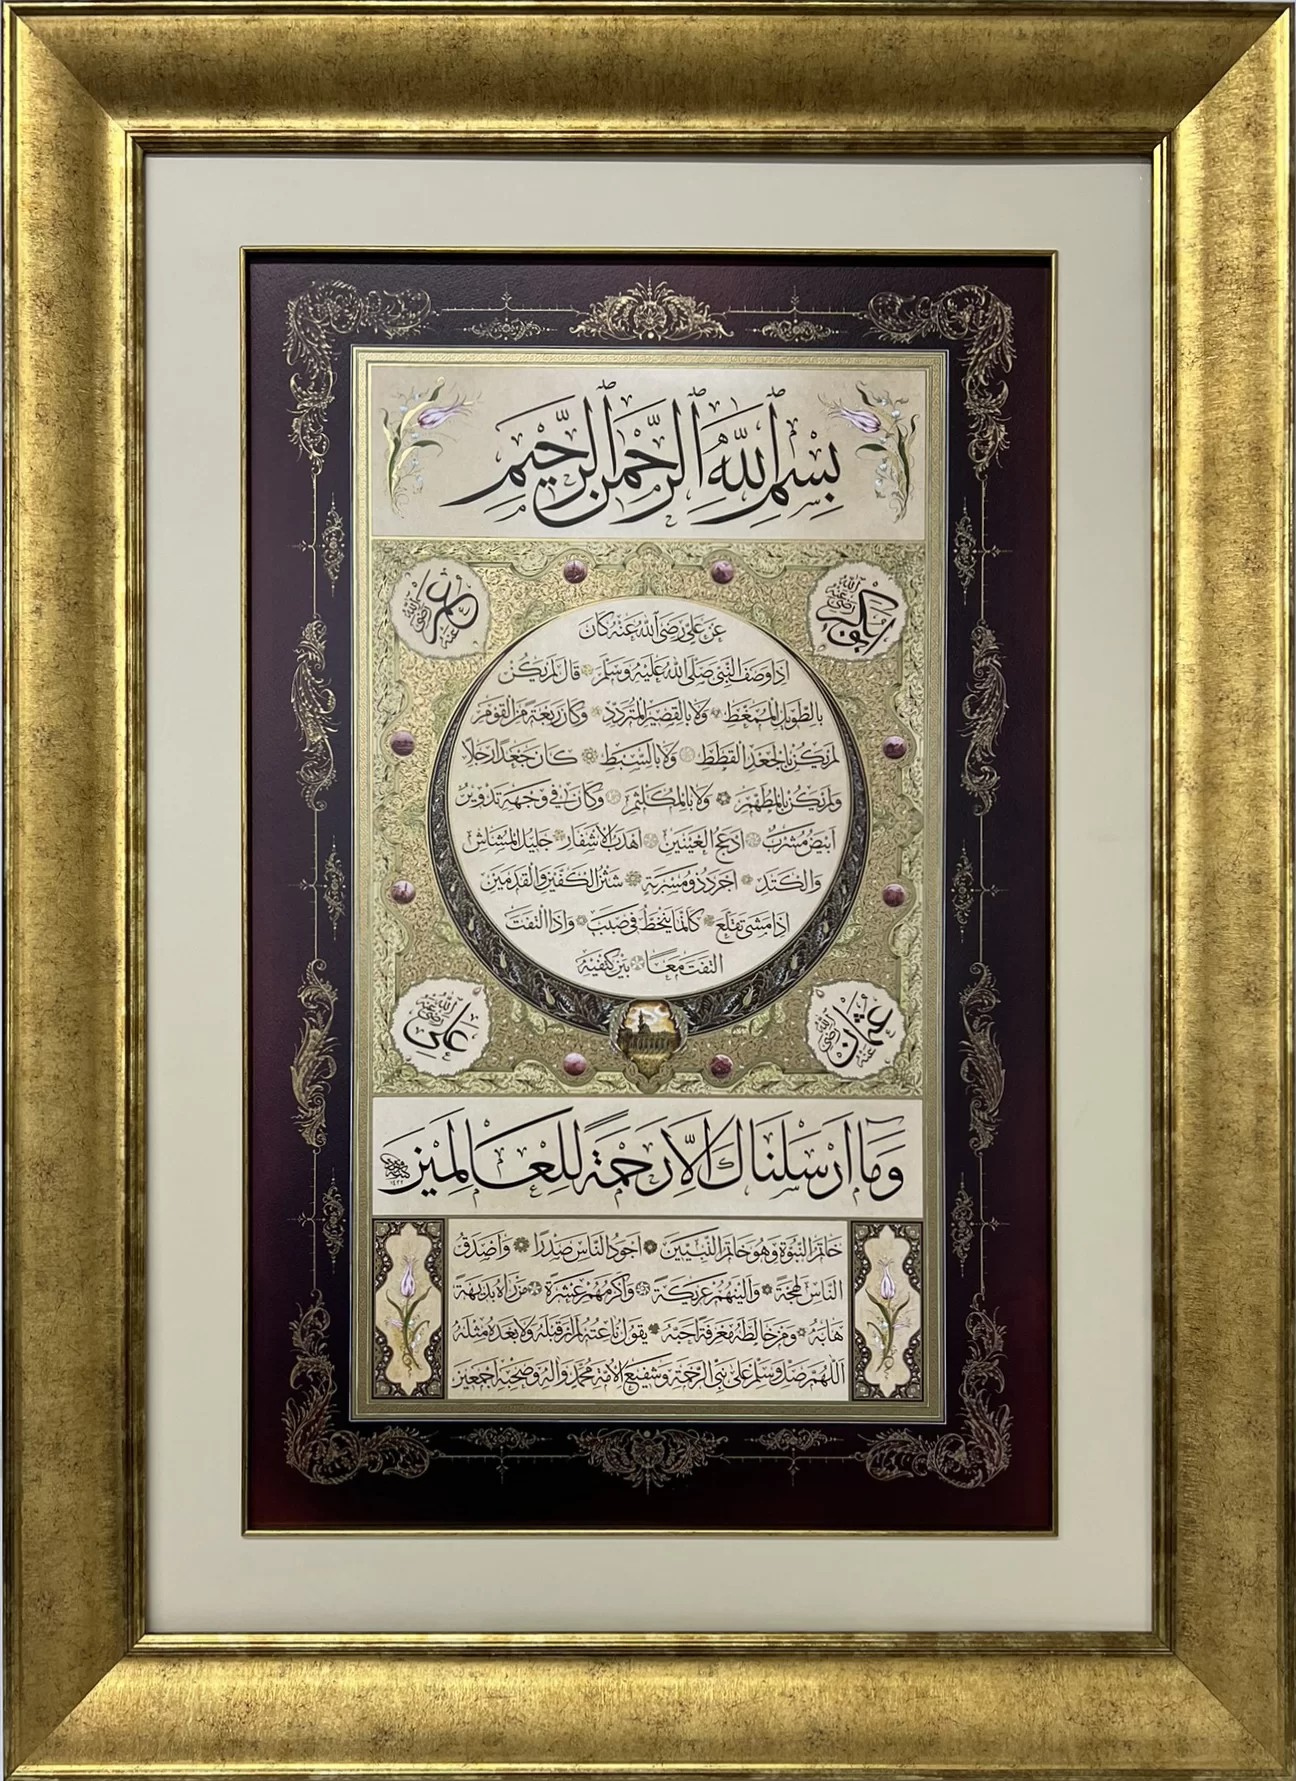 بِسْمِ اللّٰهِ الرَّحْمٰنِ الرَّحِيْمِ
ابوبكر رضي الله عنه
عمر رضي الله عنه
عَنْ عَلِيٍّ رَضِيَ اللّٰهُ عَنْهُ كَانَ
اِذَا وَصَفَ النَّبِيَّ صَلَّى اللّٰهُ عَلَيْهِ وَسَلَّمَ قَالَ لَمْ يَكُنْ
بِالطَّوِيلِ الْمُمَّغِطِ وَلَا بِالْقَصِيرِ الْمُتَرَدِّدِ وَكَانَ رَبْعَةً مِنَ الْقَوْمِ
لَمْ يَكُنْ بِالْجَعْدِ الْقَطَطِ وَلَا بِالسَّبِطِ كَانَ جَعْدًا رَجِلًا
وَلَمْ يَكُنْ بِالْمُطَهَّمِ وَلَا بِالْمُكَلْثَمِ وَكَانَ فِي وَجْهِهِ تَدْوِيرٌ
اَبْيَضُ مُشْرَبٌ اَدْعَجُ الْعَيْنَيْنِ اَهْدَبُ الْاَشْفَارِ جَلِيلُ الْمُشَاشِ
وَالْكَتَدِ اَجْرَدُ ذُو مَسْرُبَةٍ شَثْنُ الْكَفَّيْنِ وَالْقَدَمَيْنِ
اِذَا مَشَى تَقَلَّعَ كَاَنَّمَا يَنْحَطُّ فِي صَبَبٍ وَاِذَا الْتَفَتَ
الْتَفَتَ مَعًا بَيْنَ كَتِفَيْهِ
عثمان رضي الله عنه
علي رضي الله عنه
وَمَا اَرْسَلْنَاكَ اِلَّا رَحْمَةً لِلْعَالَمِينَ
خَاتَمُ النُّبُوَّةِ وَهُوَ خَاتَمُ النَّبِيِّينَ اَجْوَدُ النَّاسِ صَدْرًا وَاَصْدَقُ
النَّاسِ لَهْجَةً وَاَلْيَنُهُمْ عَرِيكَةً وَاَكْرَمُهُمْ عِشْرَةً مَنْ رَاٰهُ بَدِيهَةً
هَابَهُ وَمَنْ خَالَطَهُ مَعْرِفَةً اَحَبَّهُ يَقُولُ نَاعِتُهُ لَمْ اَرَ قَبْلَهُ وَلَا بَعْدَهُ مِثْلَهُ
اَللّٰهُمَّ صَلِّ وَسَلِّمْ عَلٰى نَبِيِّ الرَّحْمَةِ وَشَفِيعِ الْاُمَّةِ مُحَمَّدٍ وَاٰلِهِ وَصَحْبِهِ اَجْمَعِينَ